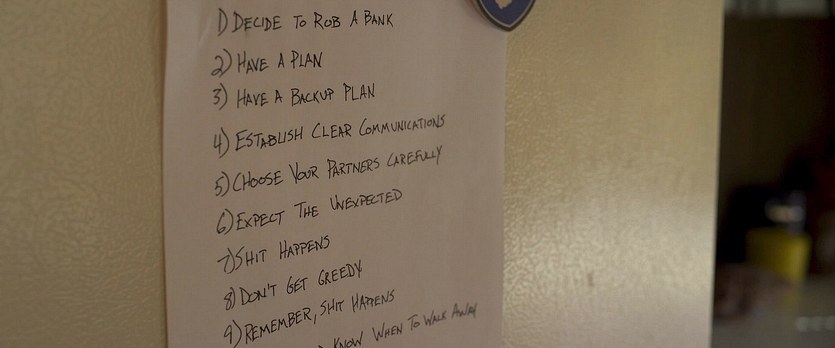 1) DECIDE TO ROB A BANK
2) HAVE A PLAN
3) HAVE A BACKUP PLAN
4) ESTABLISH CLEAR COMMUNICATIONS
5) CHOOSE YOUR PARTNERS CAREFULLY
6) EXPECT THE UNEXPECTED
7) SHIT HAPPENS
8) DON'T GET GREEDY
9) REMEMBER, SHIT HAPPENS
KNOW WHEN TO WALK AWAY